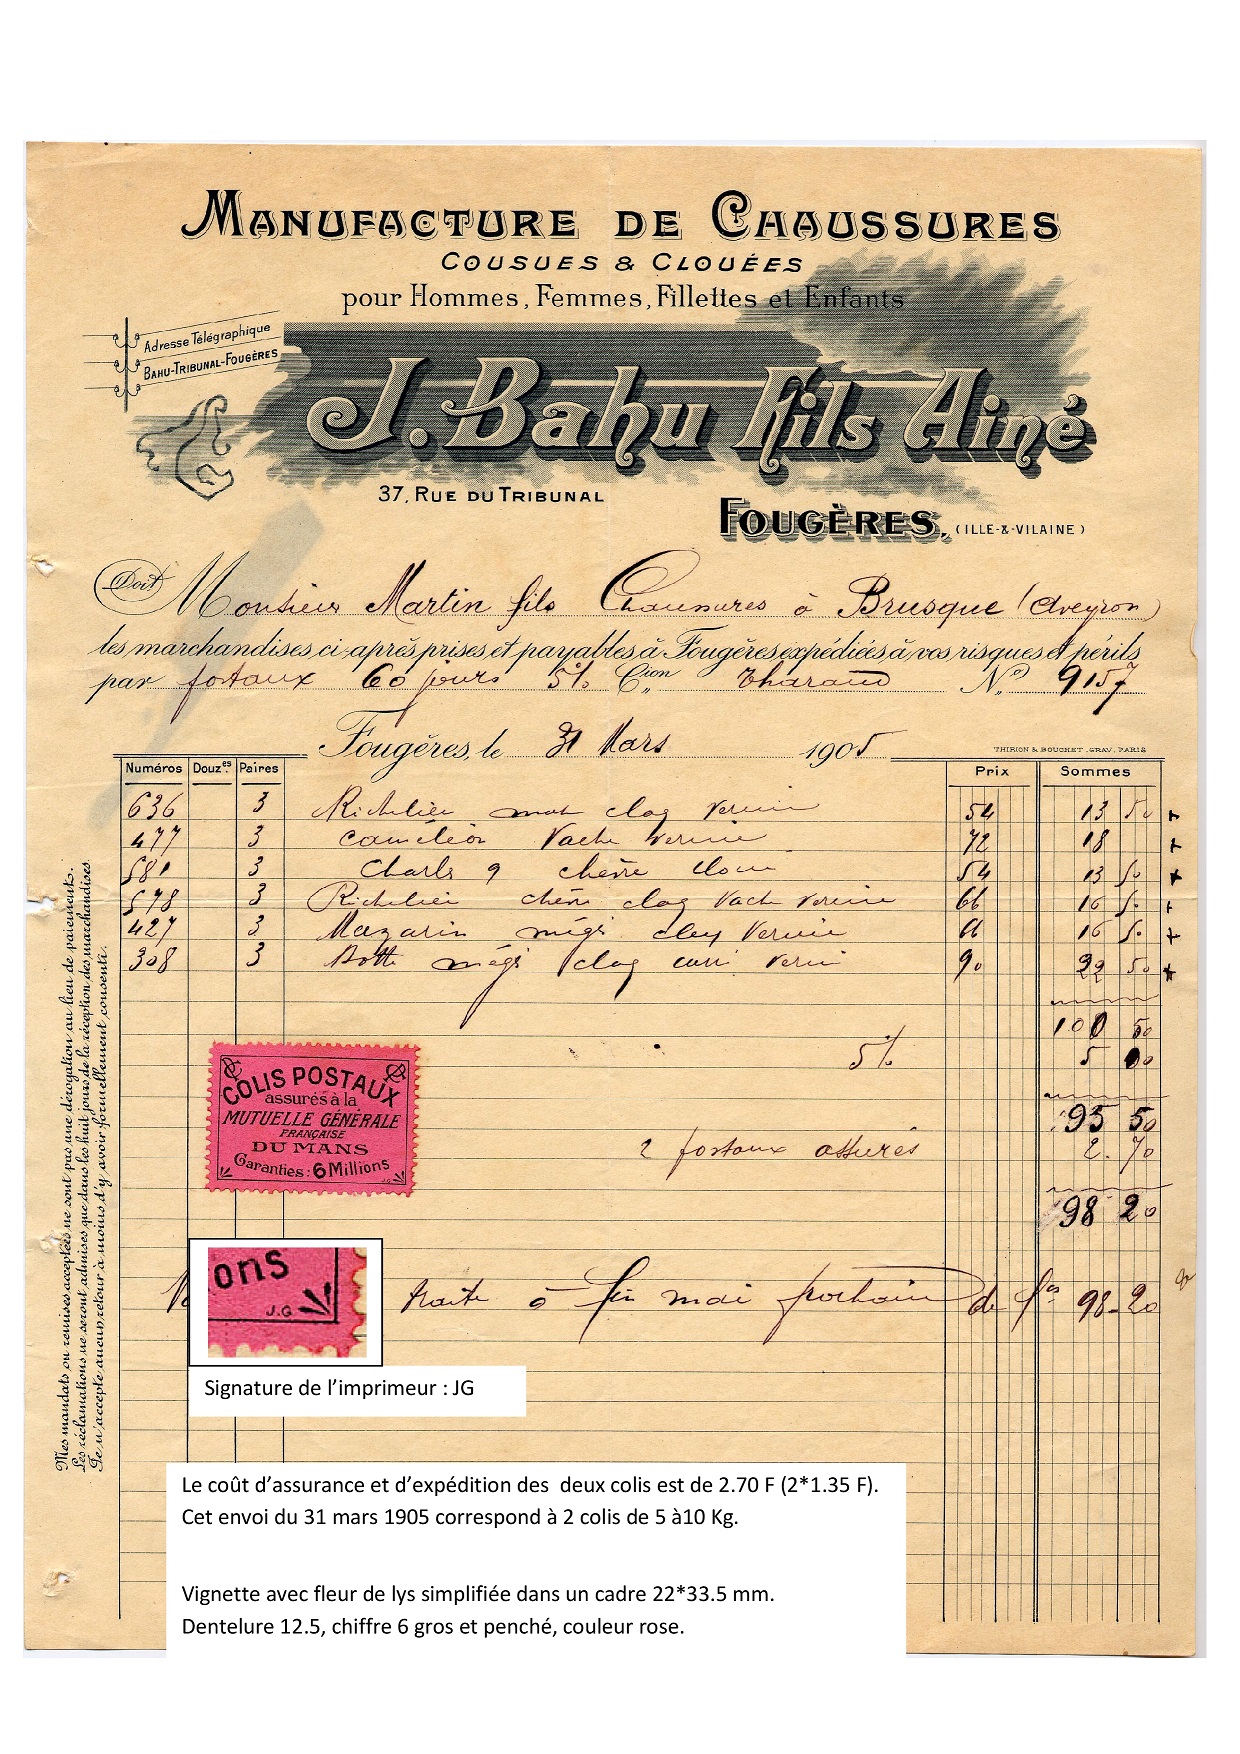 MANUFACTURE DE CHAUSSURES
COUSUES & CLOUÉES
pour Hommes, Femmes, Fillettes et Enfants
Adresse Télégraphique
BAHU-TRIBUNAL-FOUGÈRES
J. Bahu Fils Ainé
37, RUE DU TRIBUNAL
FOUGÈRES, (ILLE-&-VILAINE)
Doit Monsieur Martin fils Chaussures à Brusque (Aveyron)
les marchandises ci-après prises et payables à Fougères expédiées à vos risques et périls
par postaux 60 jours 5% Cion Tharaud No 9157
Fougères, le 31 Mars 1905
THIRION & BOUCHET. GRAV. PARIS
Numéros Douzes. Paires Prix Sommes
636 3 Richelieu mat claq vernie 54 13 50
477 3 Caméléon Vache vernie 72 18
581 3 Charls 9 chèvre 54 13 50
578 3 Richelieu chèv claq Vache vernie 66 16 50
427 3 Mazarin mégi claq vernie 66 16 50
308 3 Botte mégi claq vernie 90 22 50
100 50
5% 5 00
95 50
2 postaux assurés 2.70
98 20
COLIS POSTAUX
assurés à la
MUTUELLE GÉNÉRALE
FRANÇAISE
DU MANS
Garanties: 6 Millions
J.G
ons
J.G
traite à fin mai prochain de Frs 98-20
Signature de l’imprimeur : JG
Le coût d’assurance et d’expédition des deux colis est de 2.70 F (2*1.35 F).
Cet envoi du 31 mars 1905 correspond à 2 colis de 5 à10 Kg.
Vignette avec fleur de lys simplifiée dans un cadre 22*33.5 mm.
Dentelure 12.5, chiffre 6 gros et penché, couleur rose.
Mes mandats ou remises acceptées ne sont pas une dérogation au lieu de paiement.
Les réclamations ne seront admises que dans les huit jours de la réception des marchandises.
Je n'accepte aucun retour à moins d'y avoir formellement consenti.